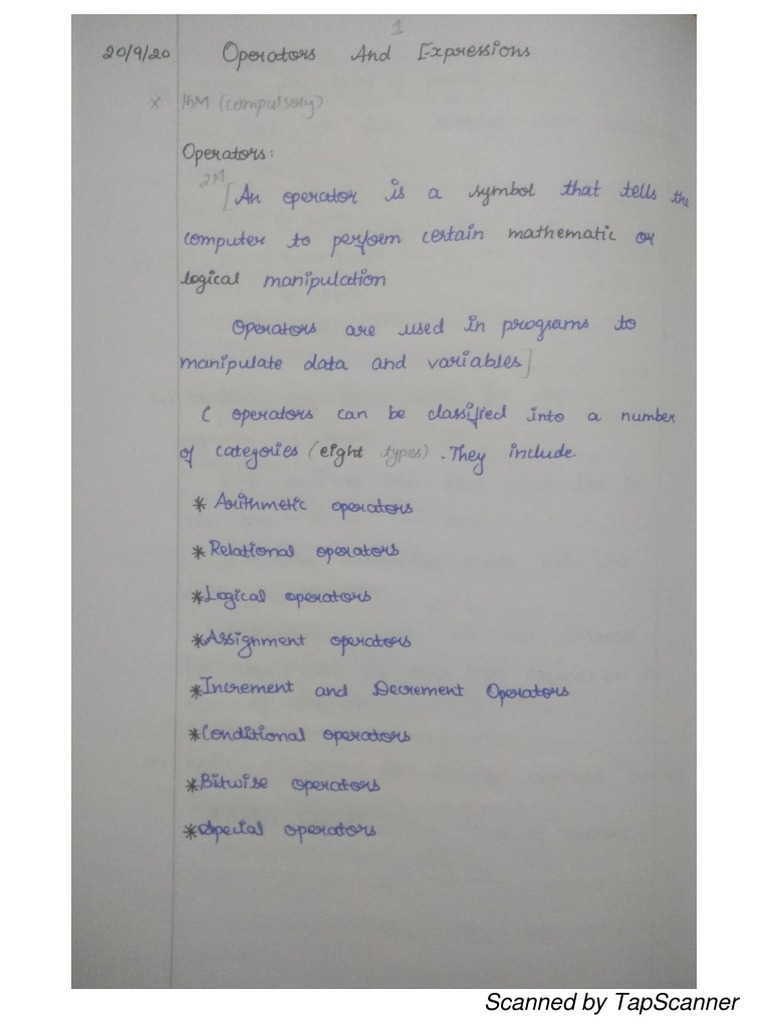 1
20/9/20 Operators And Expressions
x 15M (compulsory)
Operators:
2M
[An operator is a symbol that tells the
computer to perform certain mathematic or
logical manipulation
Operators are used in programs to
manipulate data and variables]
C operators can be classified into a number
of categories (eight types). They include
* Arithmetic operators
* Relational operators
* Logical operators
* Assignment operators
* Increment and Decrement Operators
* Conditional operators
* Bitwise operators
* Special operators
Scanned by TapScanner